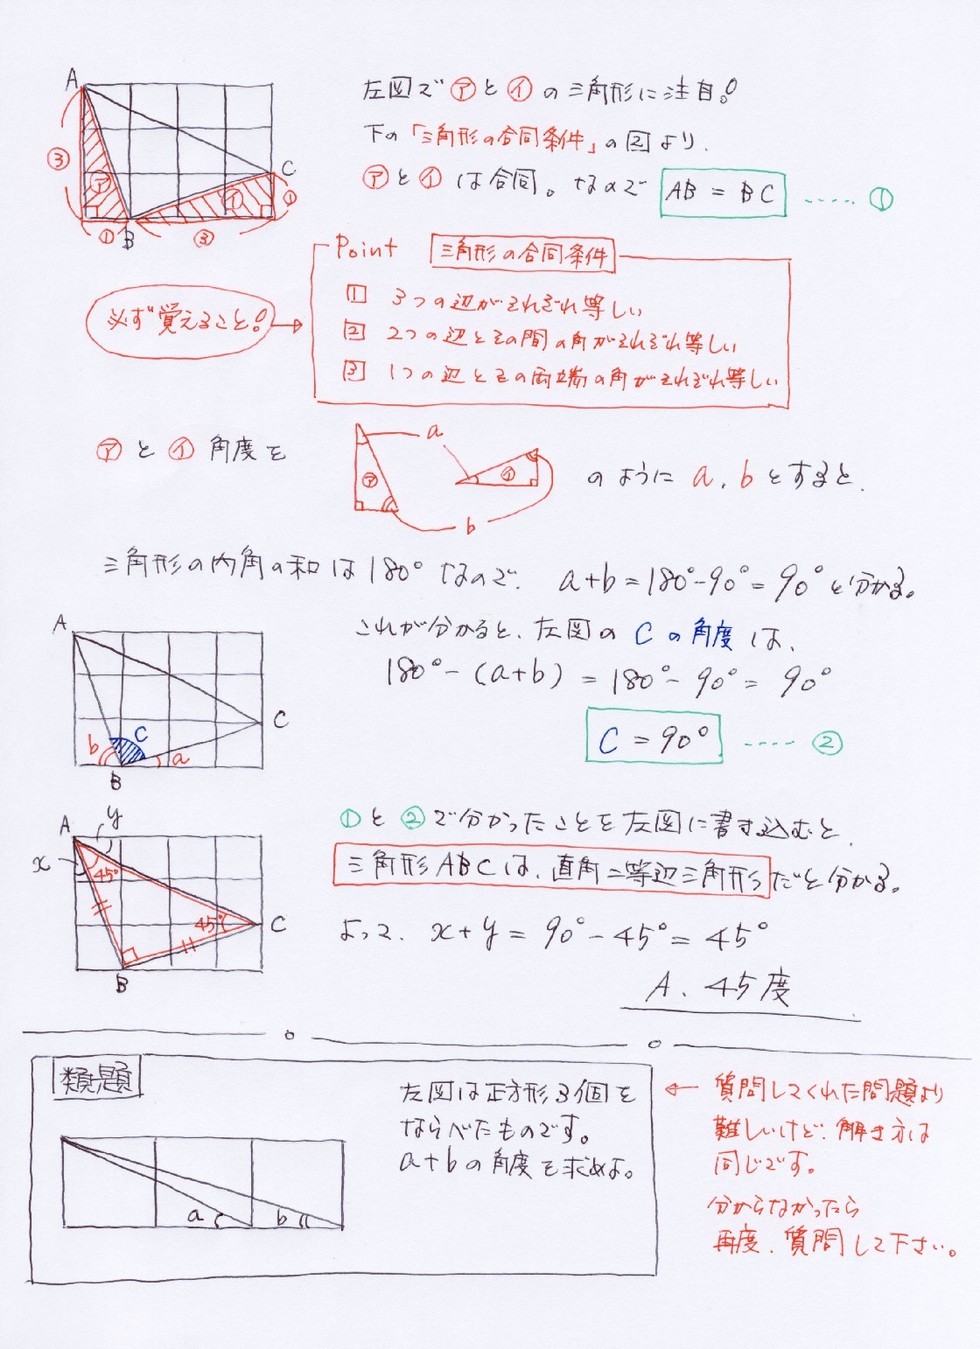 A
左図で㋐と㋑の三角形に注目!
下の「三角形の合同条件」の②より、
③
㋐
C
㋐と㋑は合同。なので AB = BC …… ①
㋑
①
①
B
③
Point 三角形の合同条件
必ず覚えること!
1 3つの辺がそれぞれ等しい
2 2つの辺とその間の角がそれぞれ等しい
3 1つの辺とその両端の角がそれぞれ等しい
㋐と㋑角度を
a
㋐
㋑
b
のようにa, bとすると、
三角形の内角の和は180°なので、 a+b=180°-90°=90°と分かる。
A
これが分かると、左図のCの角度は、
180°-(a+b) = 180°-90°= 90°
C
b
C
a
B
C = 90° …… ②
A
y
①と②で分かったことを左図に書き込むと、
x
45°
三角形ABCは、直角二等辺三角形だと分かる。
45°
C
よって、x+y = 90°-45°= 45°
B
A. 45度
類題
左図は正方形3個を
ならべたものです。
a+bの角度を求めよ。
a
b
← 質問してくれた問題より
難しいけど、解き方は
同じです。
分からなかったら
再度、質問して下さい。